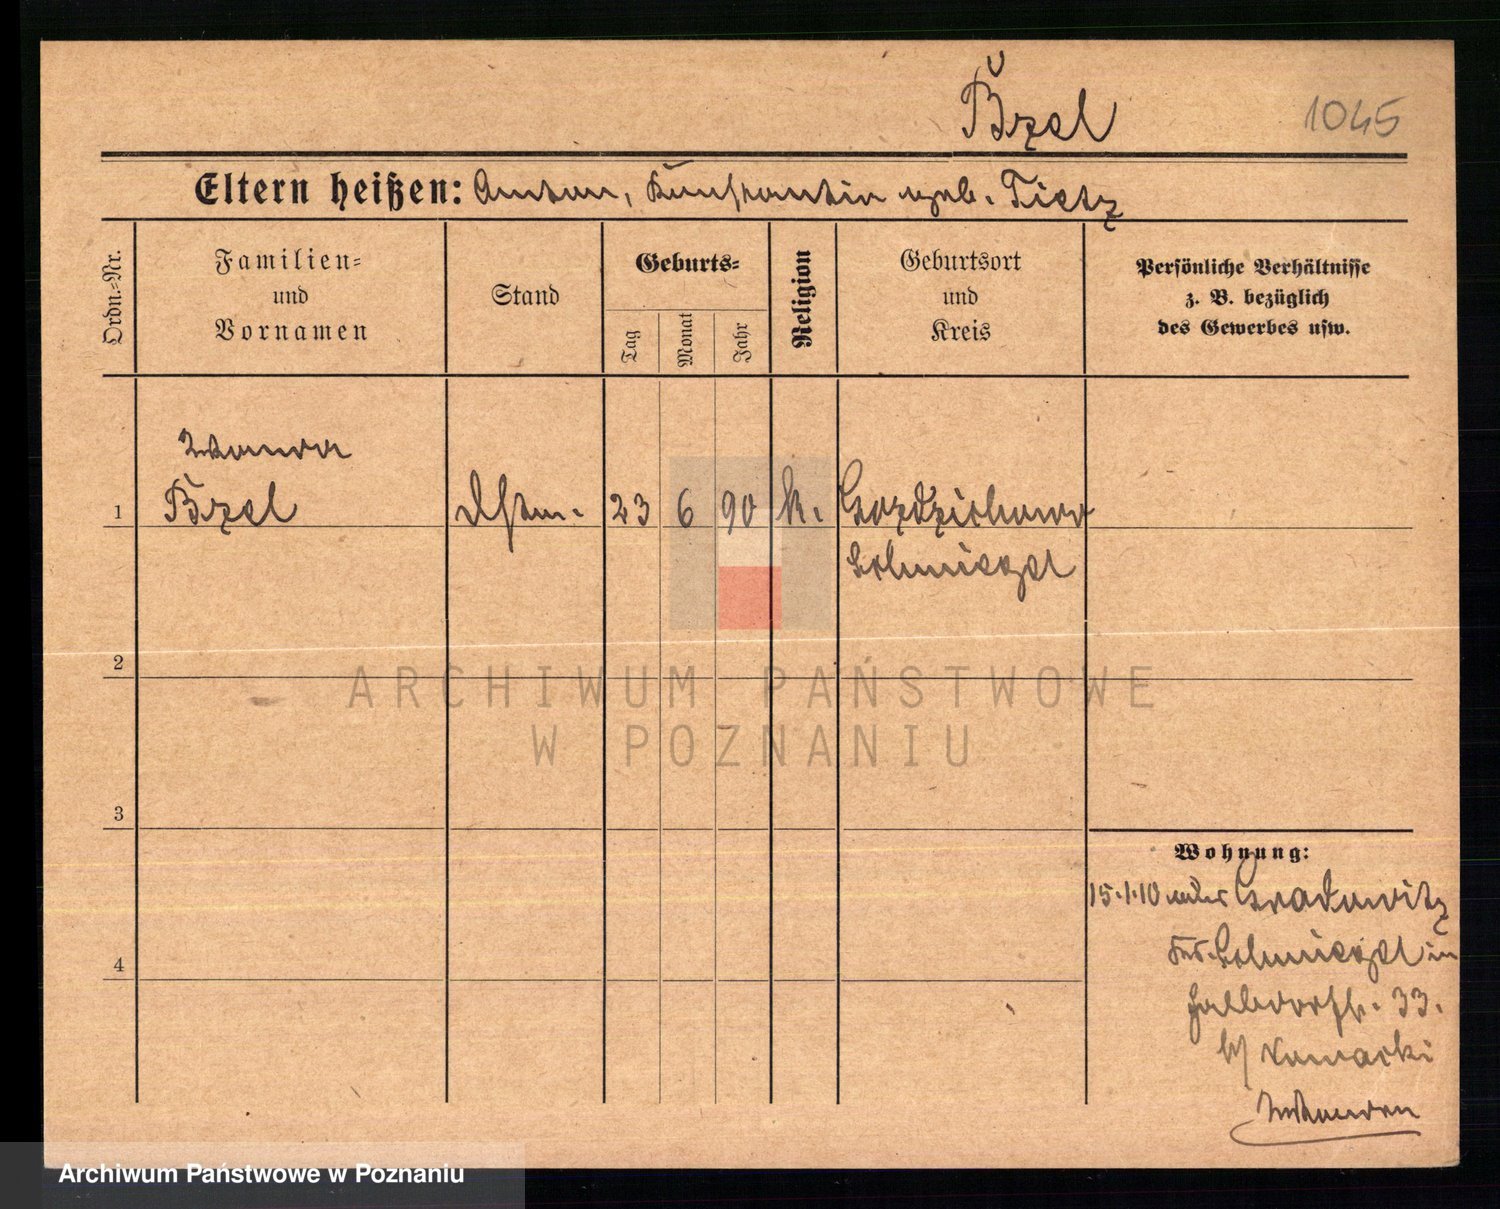 Bzel 1045
Eltern heißen: Anton, Konstantin geb. Tietz
Ordn.=Nr.
Familien=
und
Vornamen
Stand
Geburts=
Tag
Monat
Jahr
Religion
Geburtsort
und
Kreis
Persönliche Verhältnisse
z. B. bezüglich
des Gewerbes usw.
Wanda
1 Bzel 23 6 90 k. Gozdzichowo
Schmiegel
2
3
4
Wohnung:
15.1.10 Gradowitz
Krs. Schmiegel in
Halbdorfstr. 33.
b/ Nowacki
ARCHIWUM PAŃSTWOWE
W POZNANIU
Archiwum Państwowe w Poznaniu